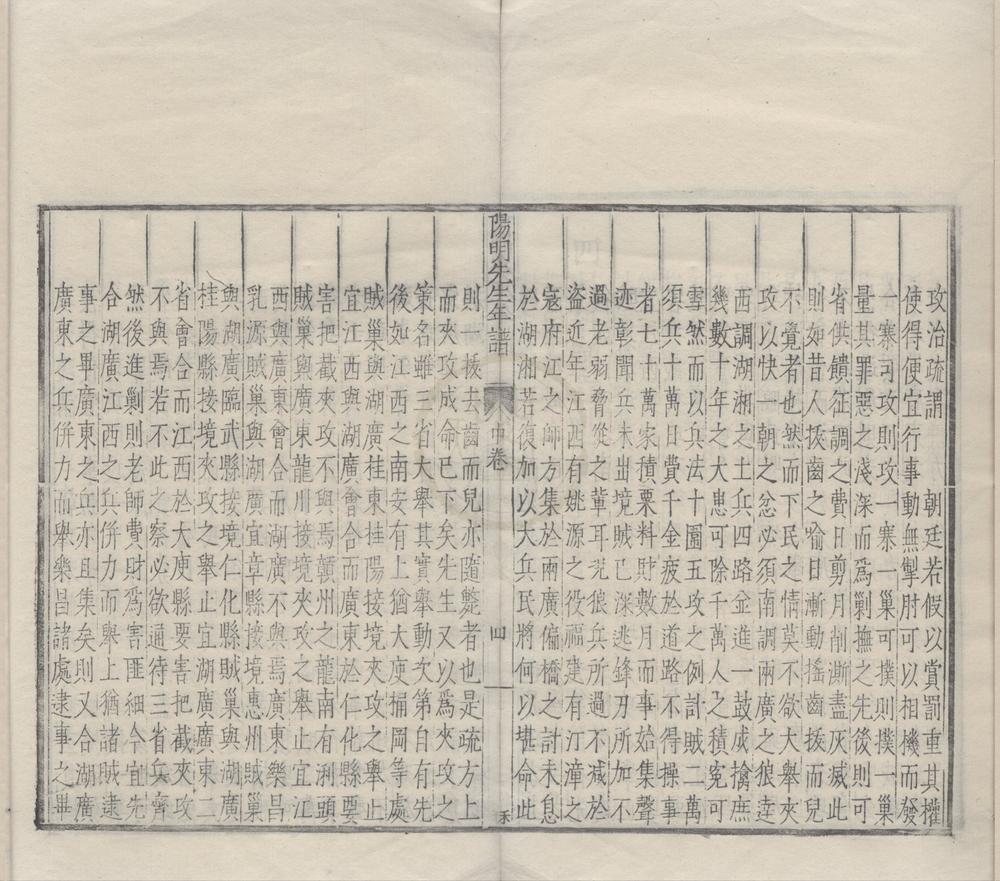 攻治疏謂　朝廷若假以賞罰重其權
使得便宜行事動無掣肘可以相機而發
一寨可攻則攻一寨一巢可撲則撲一巢
量其罪惡之淺深而爲剿撫之先後則可
省供饋征調之費日剪月削澌盡灰滅此
則如昔人拔齒之喻日漸動搖齒拔而兒
不覺者也然而下民之情莫不欲大舉夾
攻以快一朝之忿必須南調兩廣之狼達
西調湖湘之土兵四路並進一鼓成擒庶
幾數十年之大患可除千萬人之積寃可
雪然而以兵法十圍五攻之例計賊二萬
須兵十萬日費千金疲於道路不得操事
者七十萬家積粟料財數月而事始集聲
迹彰聞兵未出境賊已深逃鋒刃所加不
過老弱脅從之輩耳况狼兵所過不减於
盜近年江西有姚源之役福建有汀漳之
寇府江之師方集於兩廣偏橋之討未息
於湖湘若復加以大兵民將何以堪命此
陽明先生年譜　中卷　四　禾
則一拔去齒而兒亦隨斃者也是疏方上
而夾攻成命已下矣先生又以爲夾攻之
策名雖三省大舉其實舉動次第自有先
後如江西之南安有上猶大庾桶岡等處
賊巢與湖廣桂東桂陽接境夾攻之舉止
宜江西與湖廣會合而廣東於仁化縣要
害把截夾攻不與焉贛州之龍南有浰頭
賊巢與廣東龍川接境夾攻之舉止宜江
西與廣東會合而湖廣不與焉廣東樂昌
乳源賊巢與湖廣宜章縣接境惠州賊巢
與湖廣臨武縣接境仁化縣賊巢與湖廣
桂陽縣接境夾攻之舉止宜湖廣廣東二
省會合而江西於大庾縣要害把截夾攻
不與焉若不此之察必欲通待三省兵齊
然後進剿則老師費財爲害匪細今宜先
合湖廣江西之兵併力而舉上猶諸賊逮
事之畢廣東之兵亦且集矣則又合湖廣
廣東之兵併力而舉樂昌諸處逮事之畢